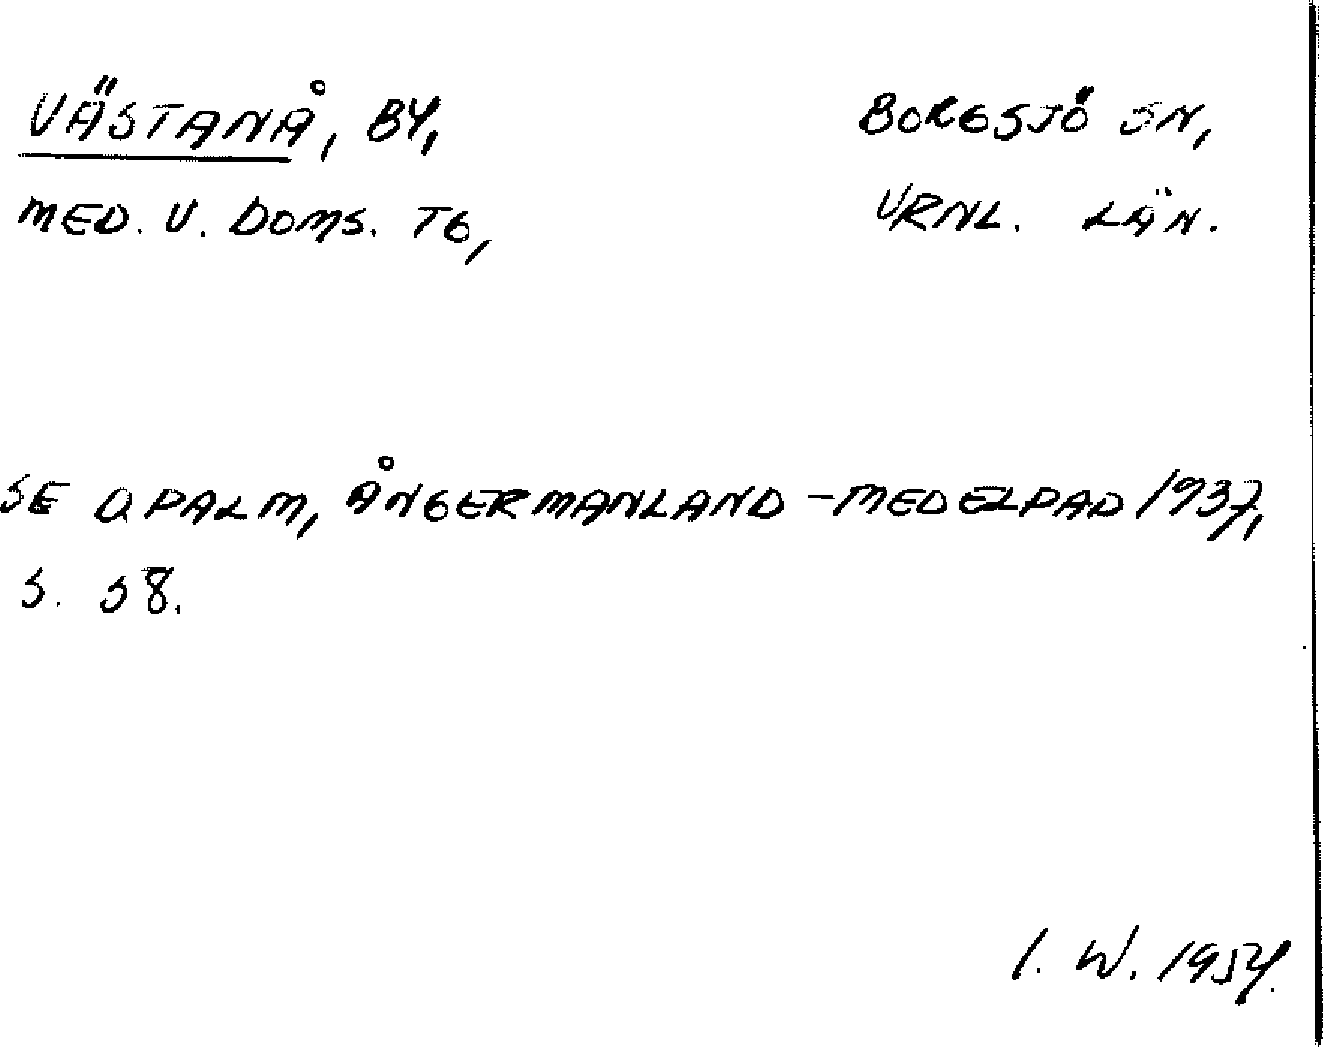 VÄSTANÅ, BY,
BORGSJÖ SN,
MED. V. DOMS. TG,
VRNL. LÄN.
SE Q PALM, ÅNGERMANLAND - MEDELPAD 1937,
S. 58.
I. W. 1954.